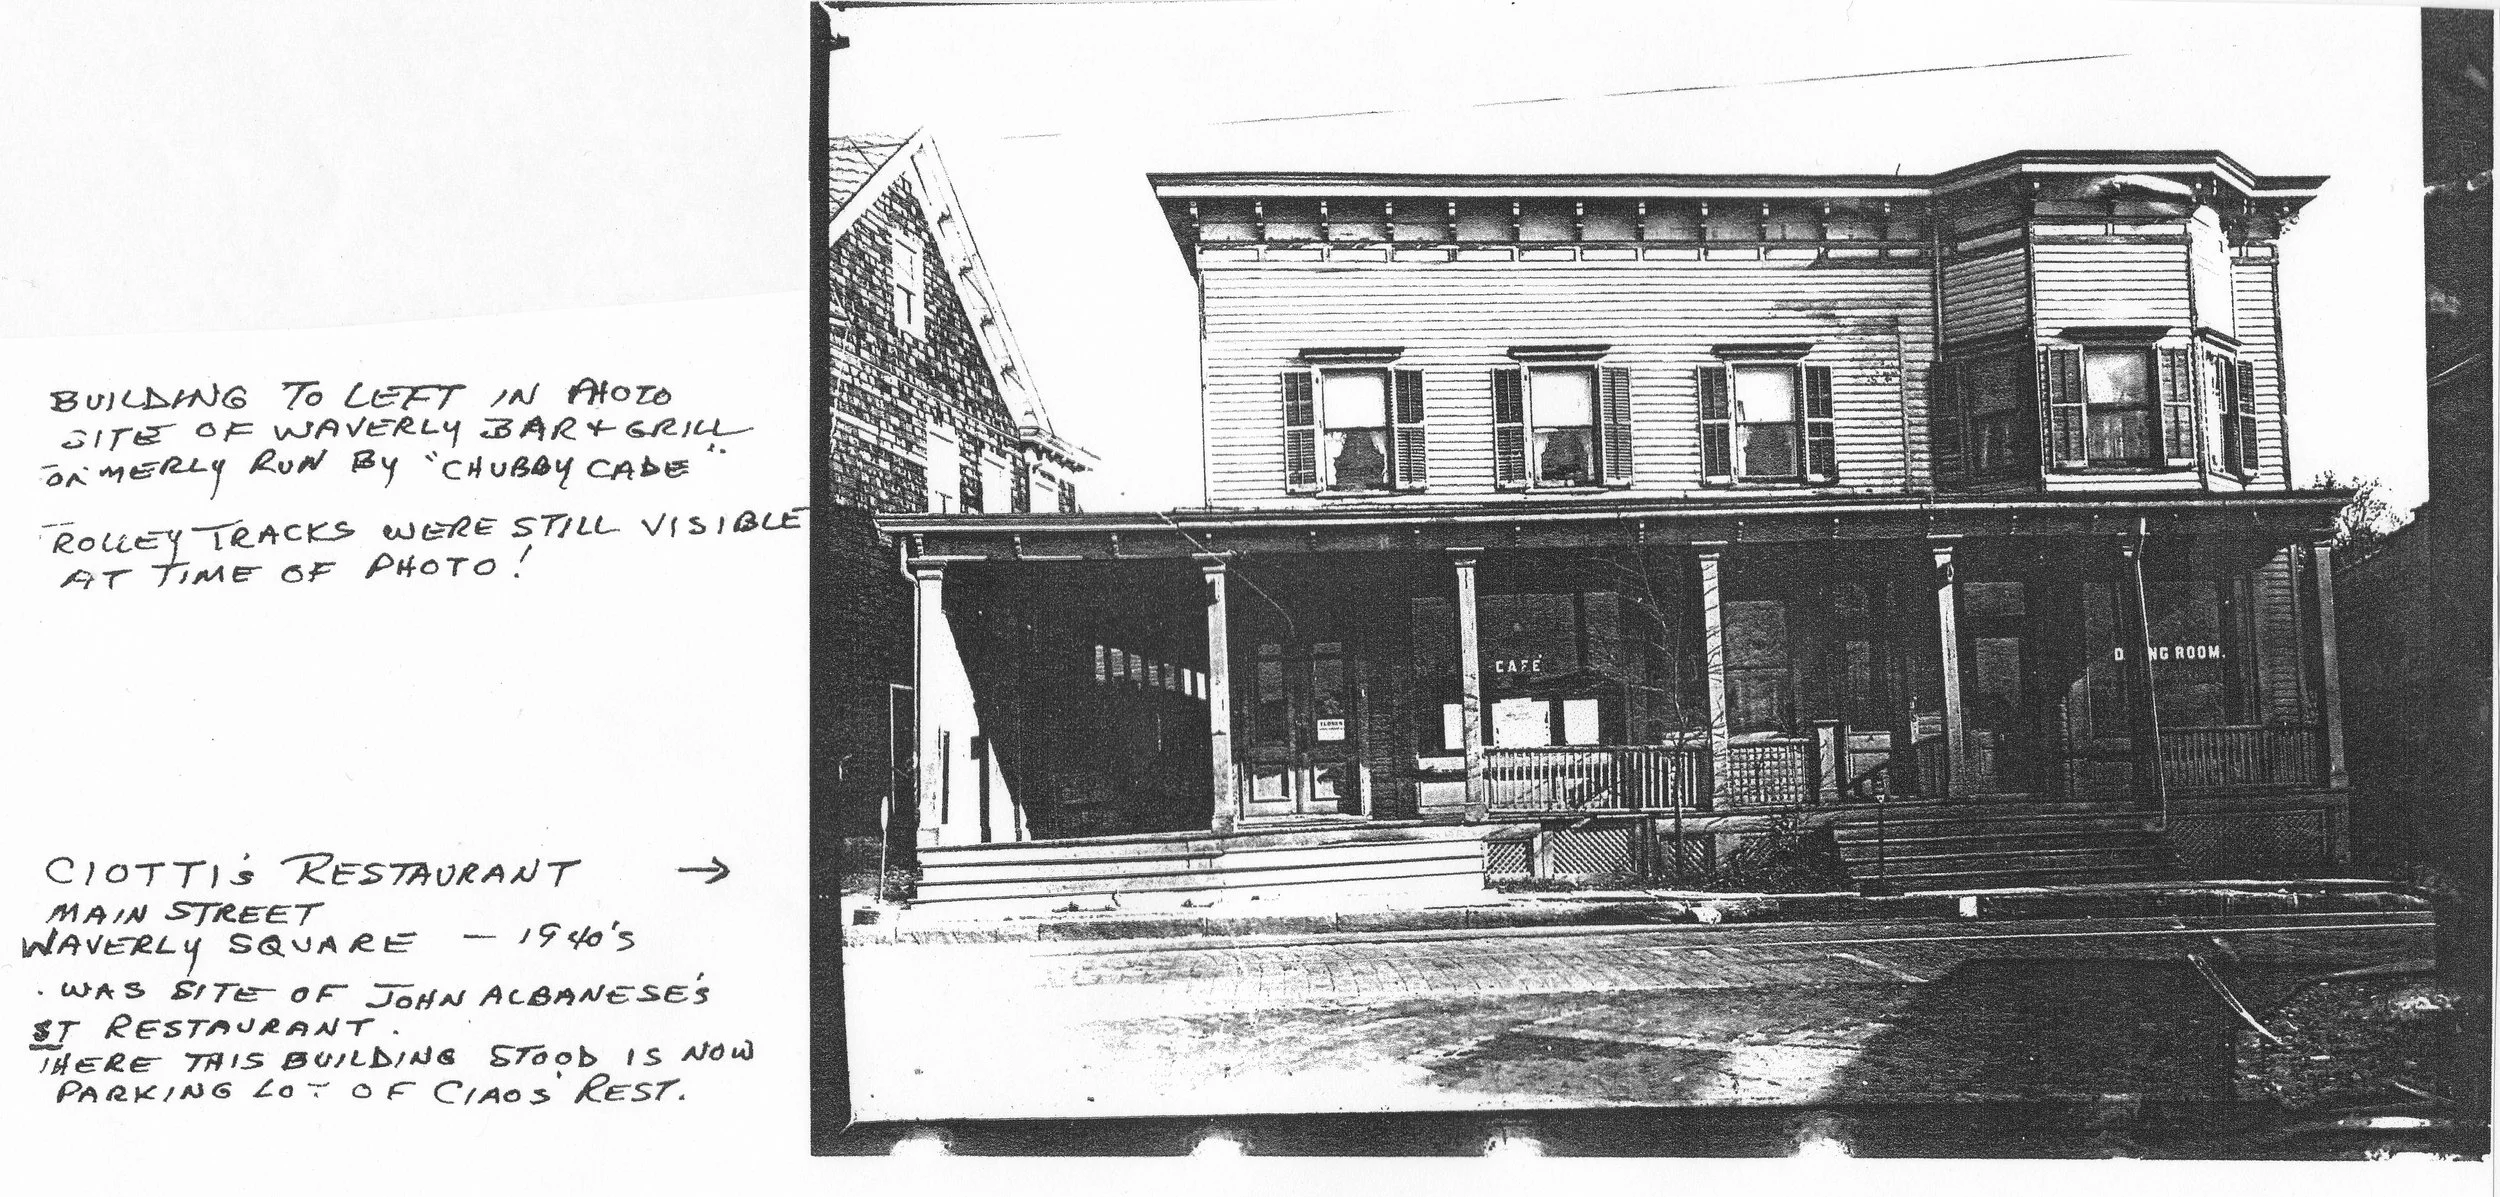 BUILDING TO LEFT IN PHOTO
SITE OF WAVERLY BAR & GRILL
ORMERLY RUN BY "CHUBBY CADE".
ROLLEY TRACKS WERE STILL VISIBLE
AT TIME OF PHOTO!
CIOTTI'S RESTAURANT →
MAIN STREET
WAVERLY SQUARE — 1940'S
. WAS SITE OF JOHN ALBANESE'S
ST RESTAURANT.
HERE THIS BUILDING STOOD IS NOW
PARKING LOT OF CIAOS' REST.
CAFÉ
D NG ROOM.
CLOSED